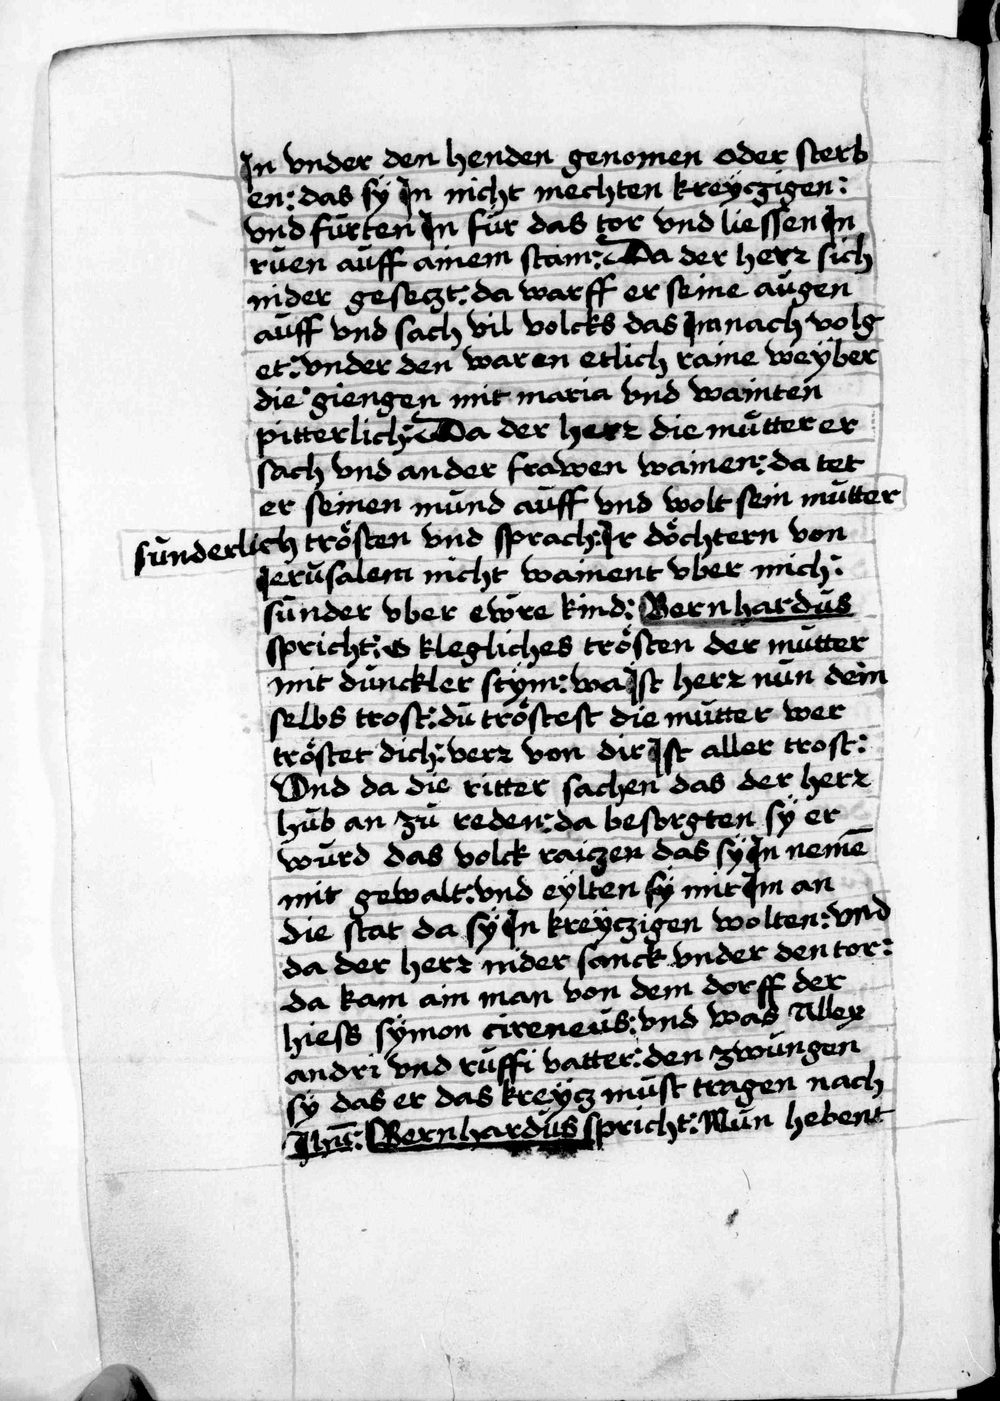 In vnder den henden genomen oder sterb
en: das sÿ In nicht mechten kreÿczigen:
vnd fürten In für das tor vnd liessen In
rüen aüff ainem stam: Da der herr sich
nider geseczt: da warff er seine aügen
aüff vnd sach vil volcks das Im nach volg
et: vnder den waren etlich raine weÿber
die giengen mit maria vnd wainten
pitterlich: Da der herr die mütter er
sach vnd ander frawen wainen: da tet
er seinen münd aüff vnd wolt sein mütter
sünderlich trösten vnd sprach: Ir döchtern von
Ierüsalem nicht wainent vber mich:
sünder vber ewre kind: Bernhardüs
spricht: o klegliches trösten der mütter
mit dünckler stÿm: wa Ist herr nün dein
selbs trost: dü tröstest die mütter wer
tröstet dich: herr von dir Ist aller trost:
Vnd da die ritter sachen das der herr
hüb an zü reden: da besorgten sÿ er
würd das volck raiczen das sÿ In nemē
mit gewalt: vnd eÿlten sÿ mit Im an
die stat da sÿ In kreÿczigen wolten: vnd
da der herr nider sanck vnder den tor:
da kam ain man von dem dorff der
hiess sÿmon cireneüs: vnd was Allex
andri vnd rüffi vatter: den zwüngen
sÿ das er das kreÿcz müst tragen nach
Ihū: Bernhardüs spricht: Nün hebent